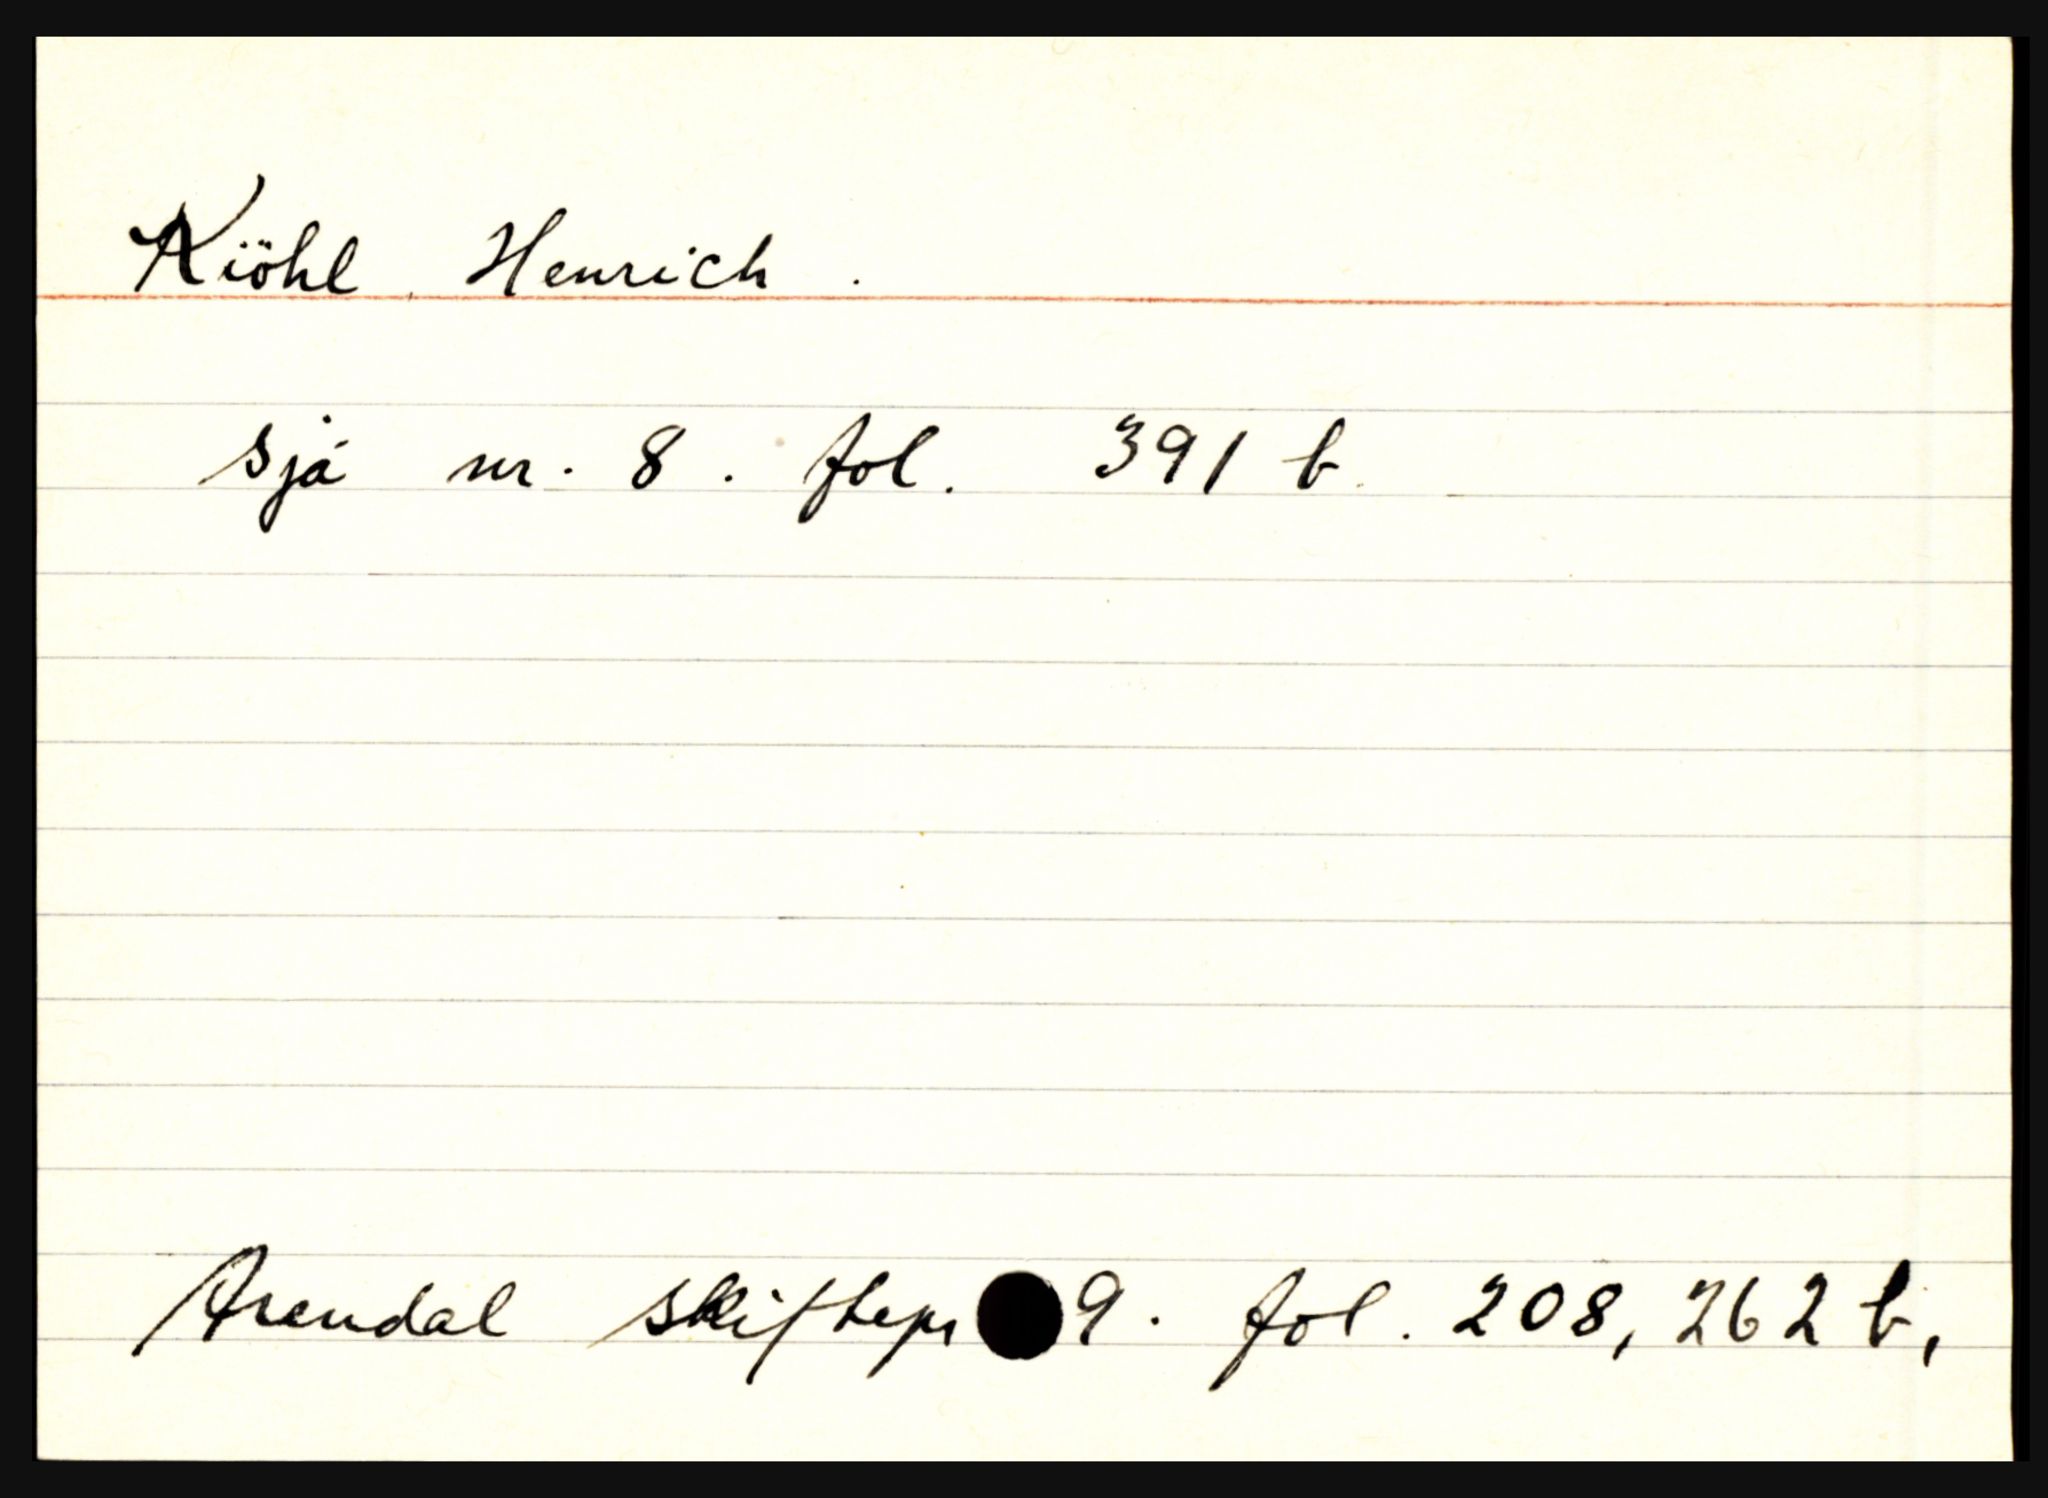 Kiöhl, Henrich.
sjå nr. 8. fol. 391 b.
Arendal skiftepr 9. fol. 208, 262 b,